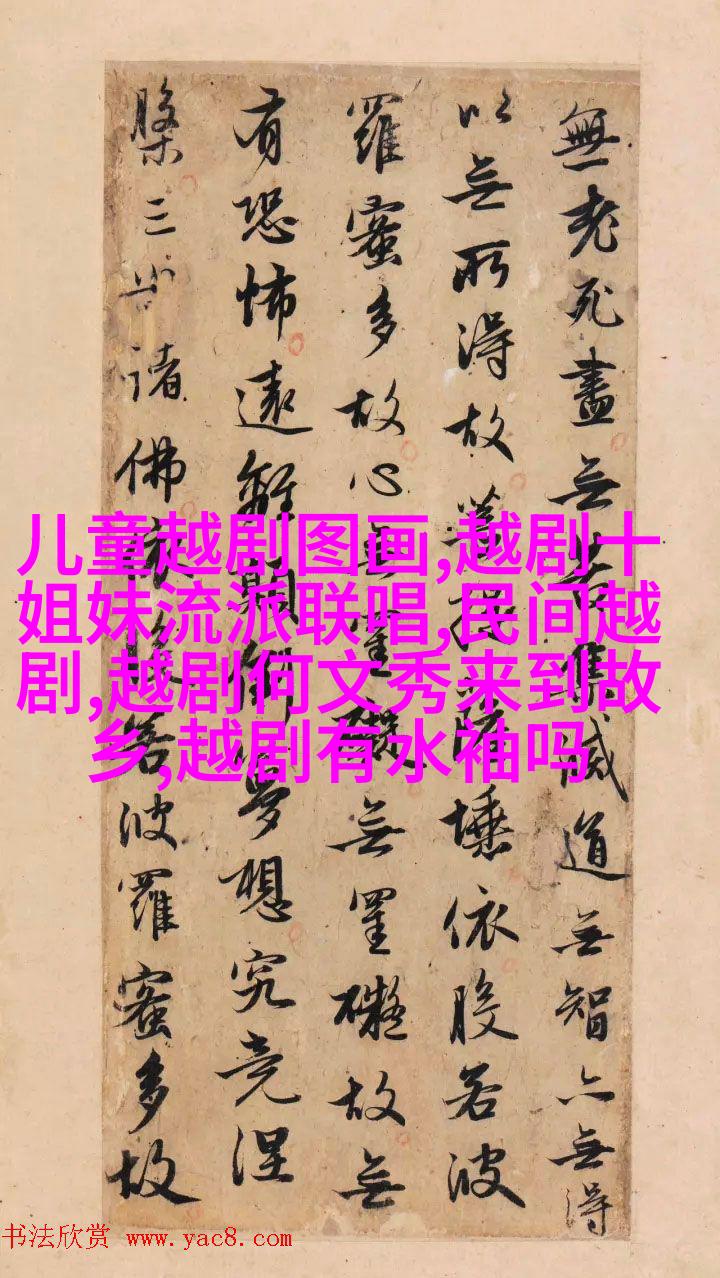 無老死盡無苦集滅道無智亦無得
以無所得故菩提薩埵依般若波
羅蜜多故心無罣礙無罣礙故無
有恐怖遠離顛倒夢想究竟涅
槃三世諸佛依般若波羅蜜多故
儿童越剧图画,越剧十
姐妹流派联唱,民间越
剧,越剧何文秀来到故
乡,越剧有水袖吗
书法欣赏 www.yac8.com